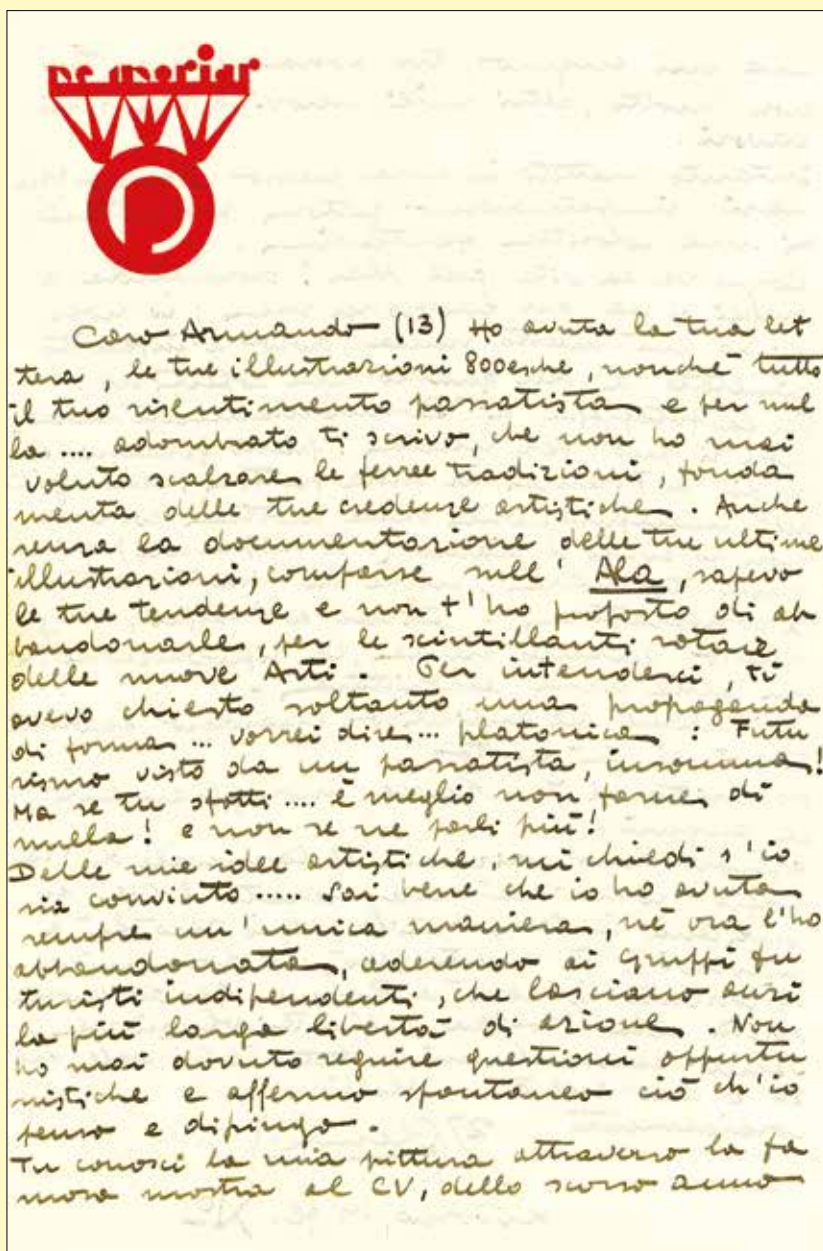 Caro Armando (13) Ho avuta la tua let
tera, le tue illustrazioni 800esche, nonchè tutto
il tuo risentimento passatista e per nul
la .... adombrato ti scrivo, che non ho mai
voluto scalzare le ferree tradizioni, fonda
menta delle tue credenze artistiche. Anche
senza la documentazione delle tue ultime
illustrazioni, comparse sull' Ala, sapevo
le tue tendenze e non t'ho proposto di ab
bandonarle, per le scintillanti rotaie
delle nuove Arti. Per intenderci, ti
avevo chiesto soltanto una propaganda
di forma ... vorrei dire ... platonica : Futu
rismo visto da un passatista, insomma!
Ma se tu sfotti .... è meglio non farne di
nulla! e non se ne parli più!
Delle mie idee artistiche, mi chiedi s'io
sia convinto ..... Sai bene che io ho avuta
sempre un'unica maniera, nè ora l'ho
abbandonata, aderendo ai gruppi fu
turisti indipendenti, che lasciano anzi
la più larga libertà di azione. Non
ho mai dovuto seguire questioni opportu
nistiche e affermo spontaneo ciò ch'io
penso e dipingo.
Tu conosci la mia pittura attraverso la fa
mosa mostra al CV, dello scorso anno